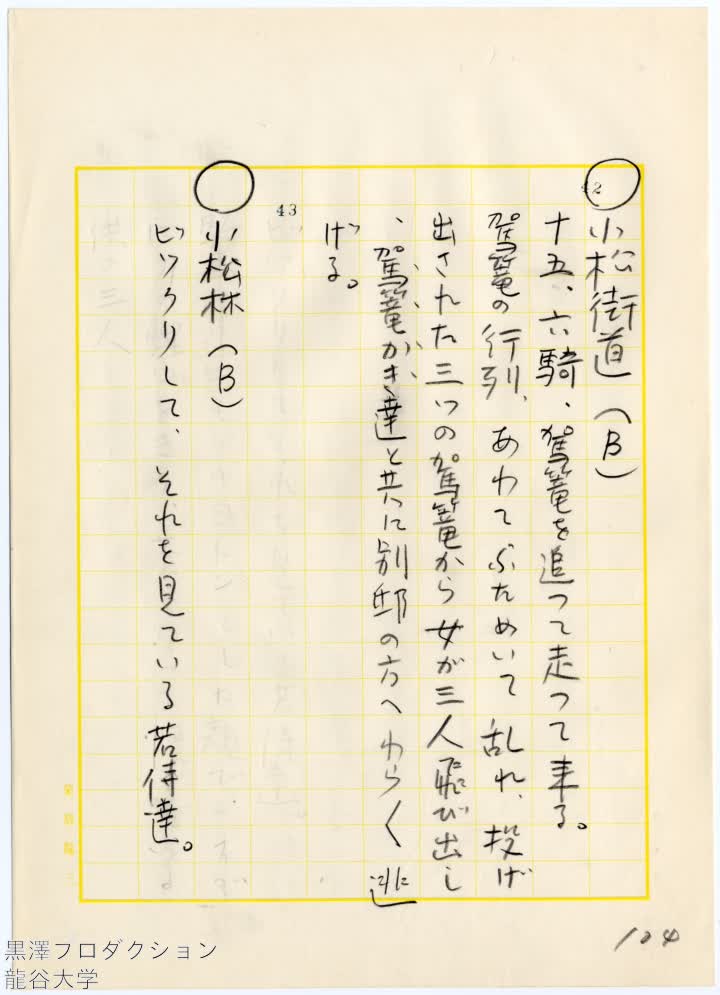 42
小松街道(B)
十五、六騎、駕篭を追つて走つて来る。
駕篭の行列、あわてぶためいて乱れ、投げ
出された三つの駕篭から女が三人飛び出し
、駕篭かき達と共に別邸の方へわらく逃
げる。
43
小松林(B)
ビツクりして、それを見ている若侍達。
104
黒澤プロダクション
龍谷大学